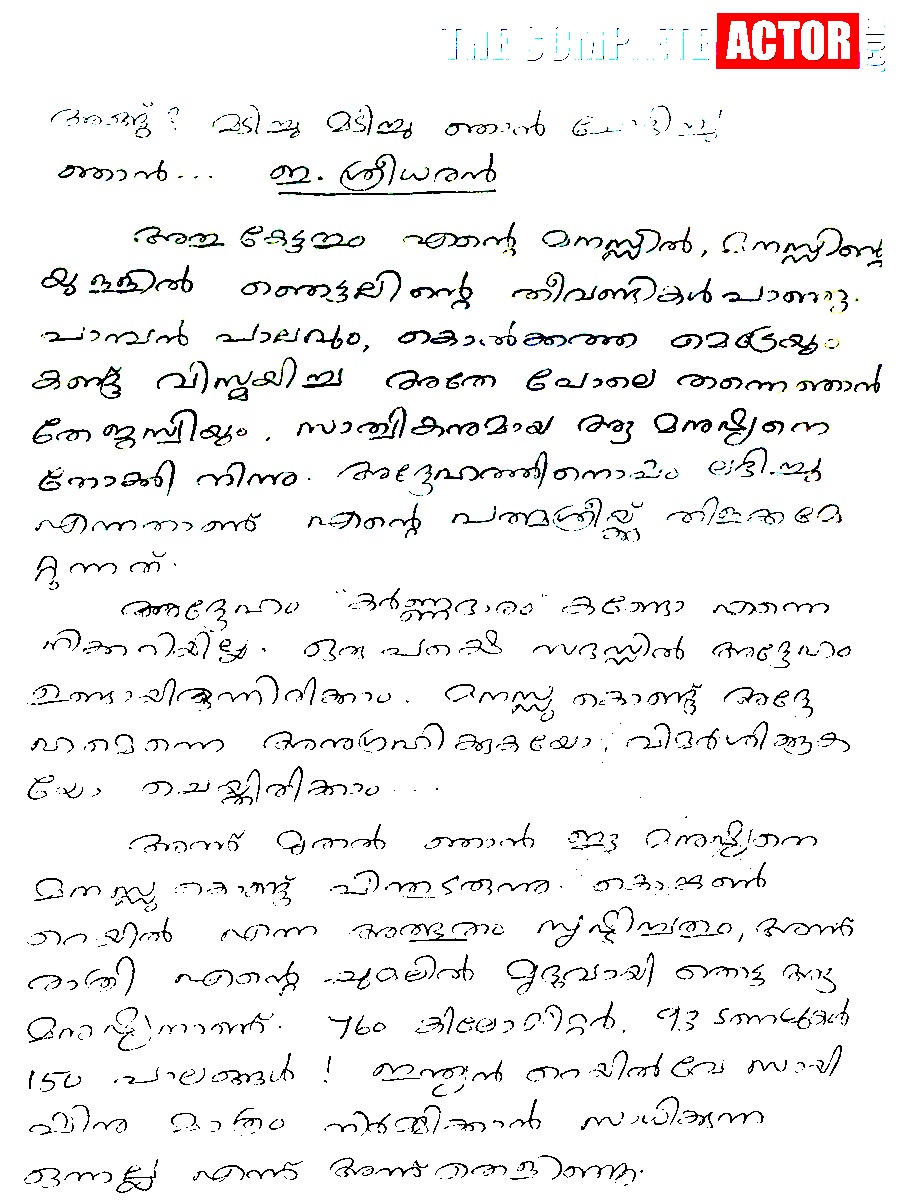 THE COMPLETE ACTOR
അങ്ങ്? മടിച്ചു മടിച്ചു ഞാൻ ചോദിച്ചു
ഞാൻ... ഇ. ശ്രീധരൻ
അത്രകേട്ടതും എന്റെ മനസ്സിൽ, മനസ്സിന്റെ
യുള്ളിൽ ഞെട്ടലിന്റെ തീവണ്ടികൾ പാഞ്ഞു.
പാമ്പൻ പാലവും, കൊൽക്കത്ത മെട്രോയും
കണ്ട് വിസ്മയിച്ച അതേ പോലെ തന്നെ ഞാൻ
തേജസ്വിയും, സാത്വികനുമായ ആ മനുഷ്യനെ
നോക്കി നിന്നു. അദ്ദേഹത്തിനൊപ്പം ലഭിച്ചു
എന്നതാണ് എന്റെ പത്മശ്രീയ്ക്ക് തിളക്കമേ
റ്റുന്നത്.
അദ്ദേഹം "കർണ്ണഭാരം" കണ്ടോ എന്നെ
നിക്കറിയില്ല. ഒരു പക്ഷെ സദസ്സിൽ അദ്ദേഹം
ഉണ്ടായിരുന്നിരിക്കാം. മനസ്സു കൊണ്ട് അദ്ദേ
ഹമെന്നെ അനുഗ്രഹിക്കുകയോ, വിമർശിക്കുക
യോ ചെയ്തിരിക്കാം...
അന്ന് മുതൽ ഞാൻ ഈ മനുഷ്യനെ
മനസ്സു കൊണ്ട് പിന്തുടരുന്നു. കൊങ്കൺ
റെയിൽ എന്ന അത്ഭുതം സൃഷ്ടിച്ചതും, അന്ന്
രാത്രി എന്റെ ചുമലിൽ മൃദുവായി തൊട്ട ആ
മനുഷ്യനാണ്. 760 കിലോമീറ്റർ, 93 ടണലുകൾ
150 പാലങ്ങൾ! ഇന്ത്യൻ റെയിൽവേ സായി
പ്പിനു മാത്രം നിർമ്മിക്കാൻ സാധിക്കുന്ന
ഒന്നല്ല എന്ന് അന്ന് തെളിഞ്ഞു.